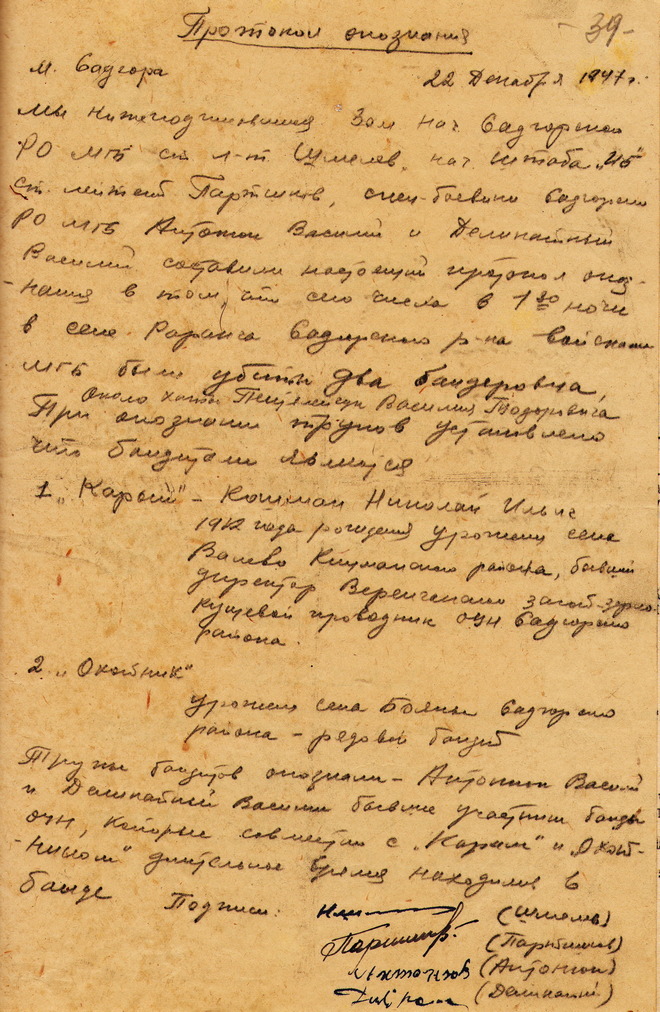 Протокол опознания
-39-
м. Садгора 22 Декабря 1947 г.
Мы нижеподписавшиеся Зам нач Садгорского
РО МГБ ст л-т Шмелев, нач. штаба "ИБ"
ст. лейтенант Паршиков, спец-боевики Садгорского
РО МГБ Антонюк Василий и Деликатный
Василий составили настоящий протокол опоз-
нания в том, что сего числа в 1 30 ночи
в селе Раранча Садгорского р-на войсками
МГБ были убиты два бандеровца,
около хаты Василия Тодоровича
При опознании трупов установлено
что бандитами являются
1 „Карый" - Кошман Николай Ильич
1912 года рождения урожен. села
Валево Кицманского района, бывший
директор Веренчанского загот-зерно
кущевой проводник ОУН Садгорского
района.
2 „Охойник"
урожен села Бояны Садгорского
района - рядовой бандит
Трупы бандитов опознали - Антонюк Василий
и Деликатный Василий бывшие участники банды
ОУН, которые совместно с „Карым" и „Охой-
ником" длительное время находились в
банде Подписи:
(Шмелев)
(Паршиков)
(Антонюк)
(Деликатный)